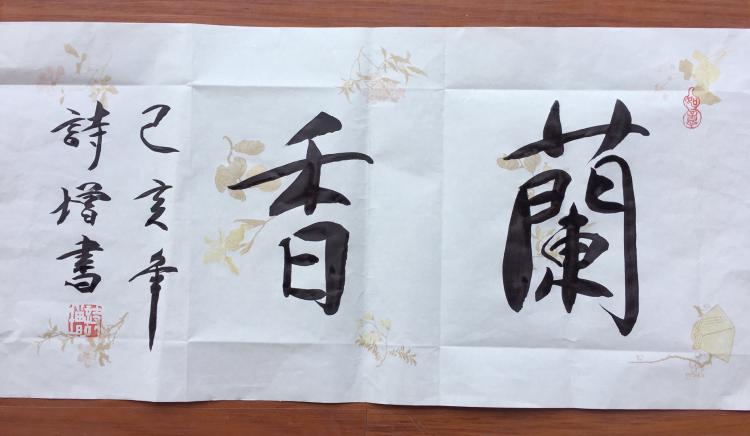 蘭香
己亥年
詩增書